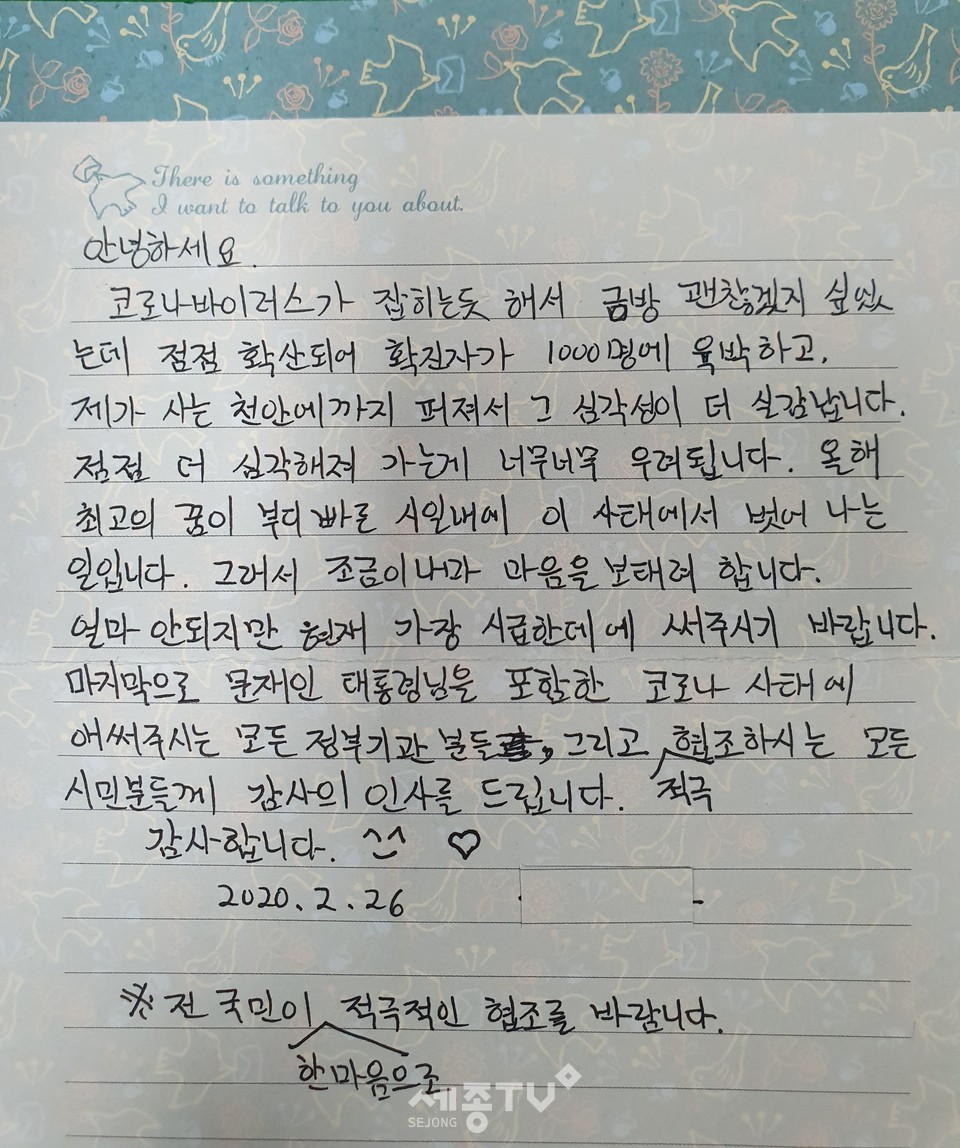 There is something
I want to talk to you about.
안녕하세요.
코로나바이러스가 잡히는듯 해서 금방 괜찮겠지 싶었
는데 점점 확산되어 확진자가 1000명에 육박하고,
제가 사는 천안에까지 퍼져서 그 심각성이 더 실감납니다.
점점 더 심각해져 가는게 너무너무 우려됩니다. 올해
최고의 꿈이 부디 빠른 시일내에 이 사태에서 벗어 나는
일입니다. 그래서 조금이나마 마음을 보태려 합니다.
얼마 안되지만 현재 가장 시급한데에 써주시기 바랍니다.
마지막으로 문재인 대통령님을 포함한 코로나 사태에
애써주시는 모든 정부기관 분들, 그리고 협조하시는 모든
시민분들께 감사의 인사를 드립니다. 적극
감사합니다. ^^ ♡
2020. 2. 26
※ 전 국민이 적극적인 협조를 바랍니다.
한마음으로
세종TV
SEJONG